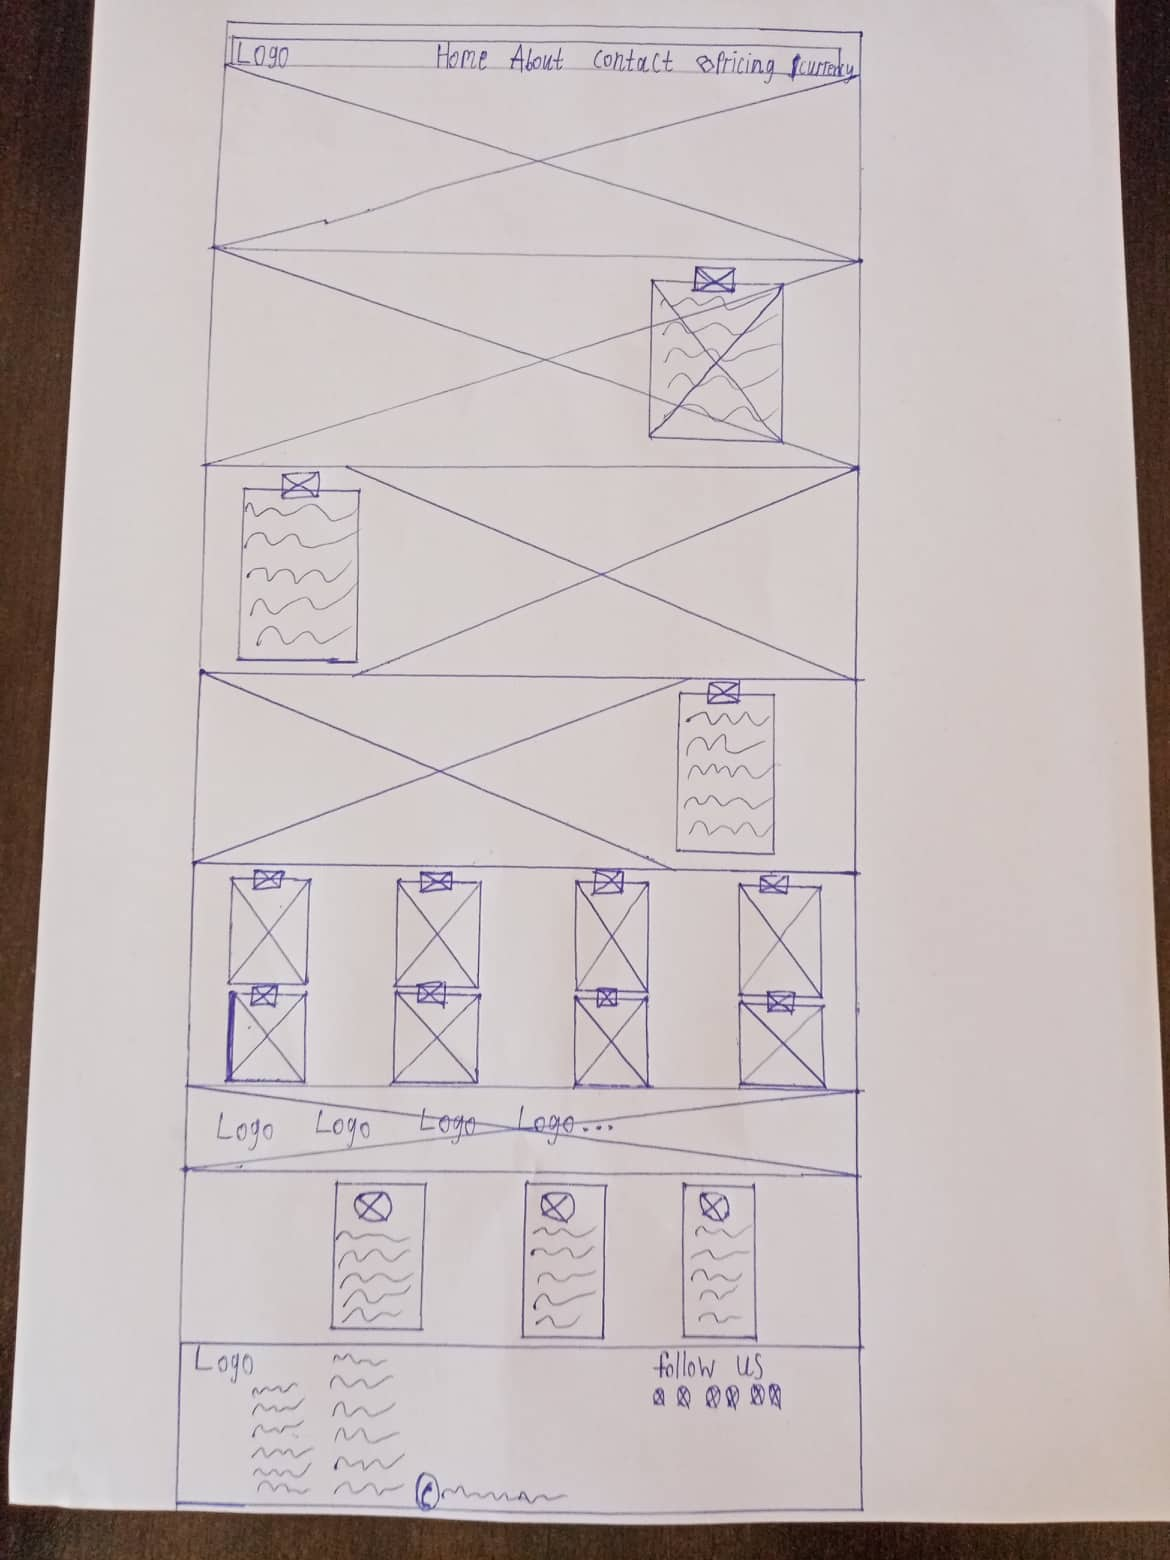 Logo Home About Contact Pricing currency
Logo Logo Logo Logo...
Logo follow us
©